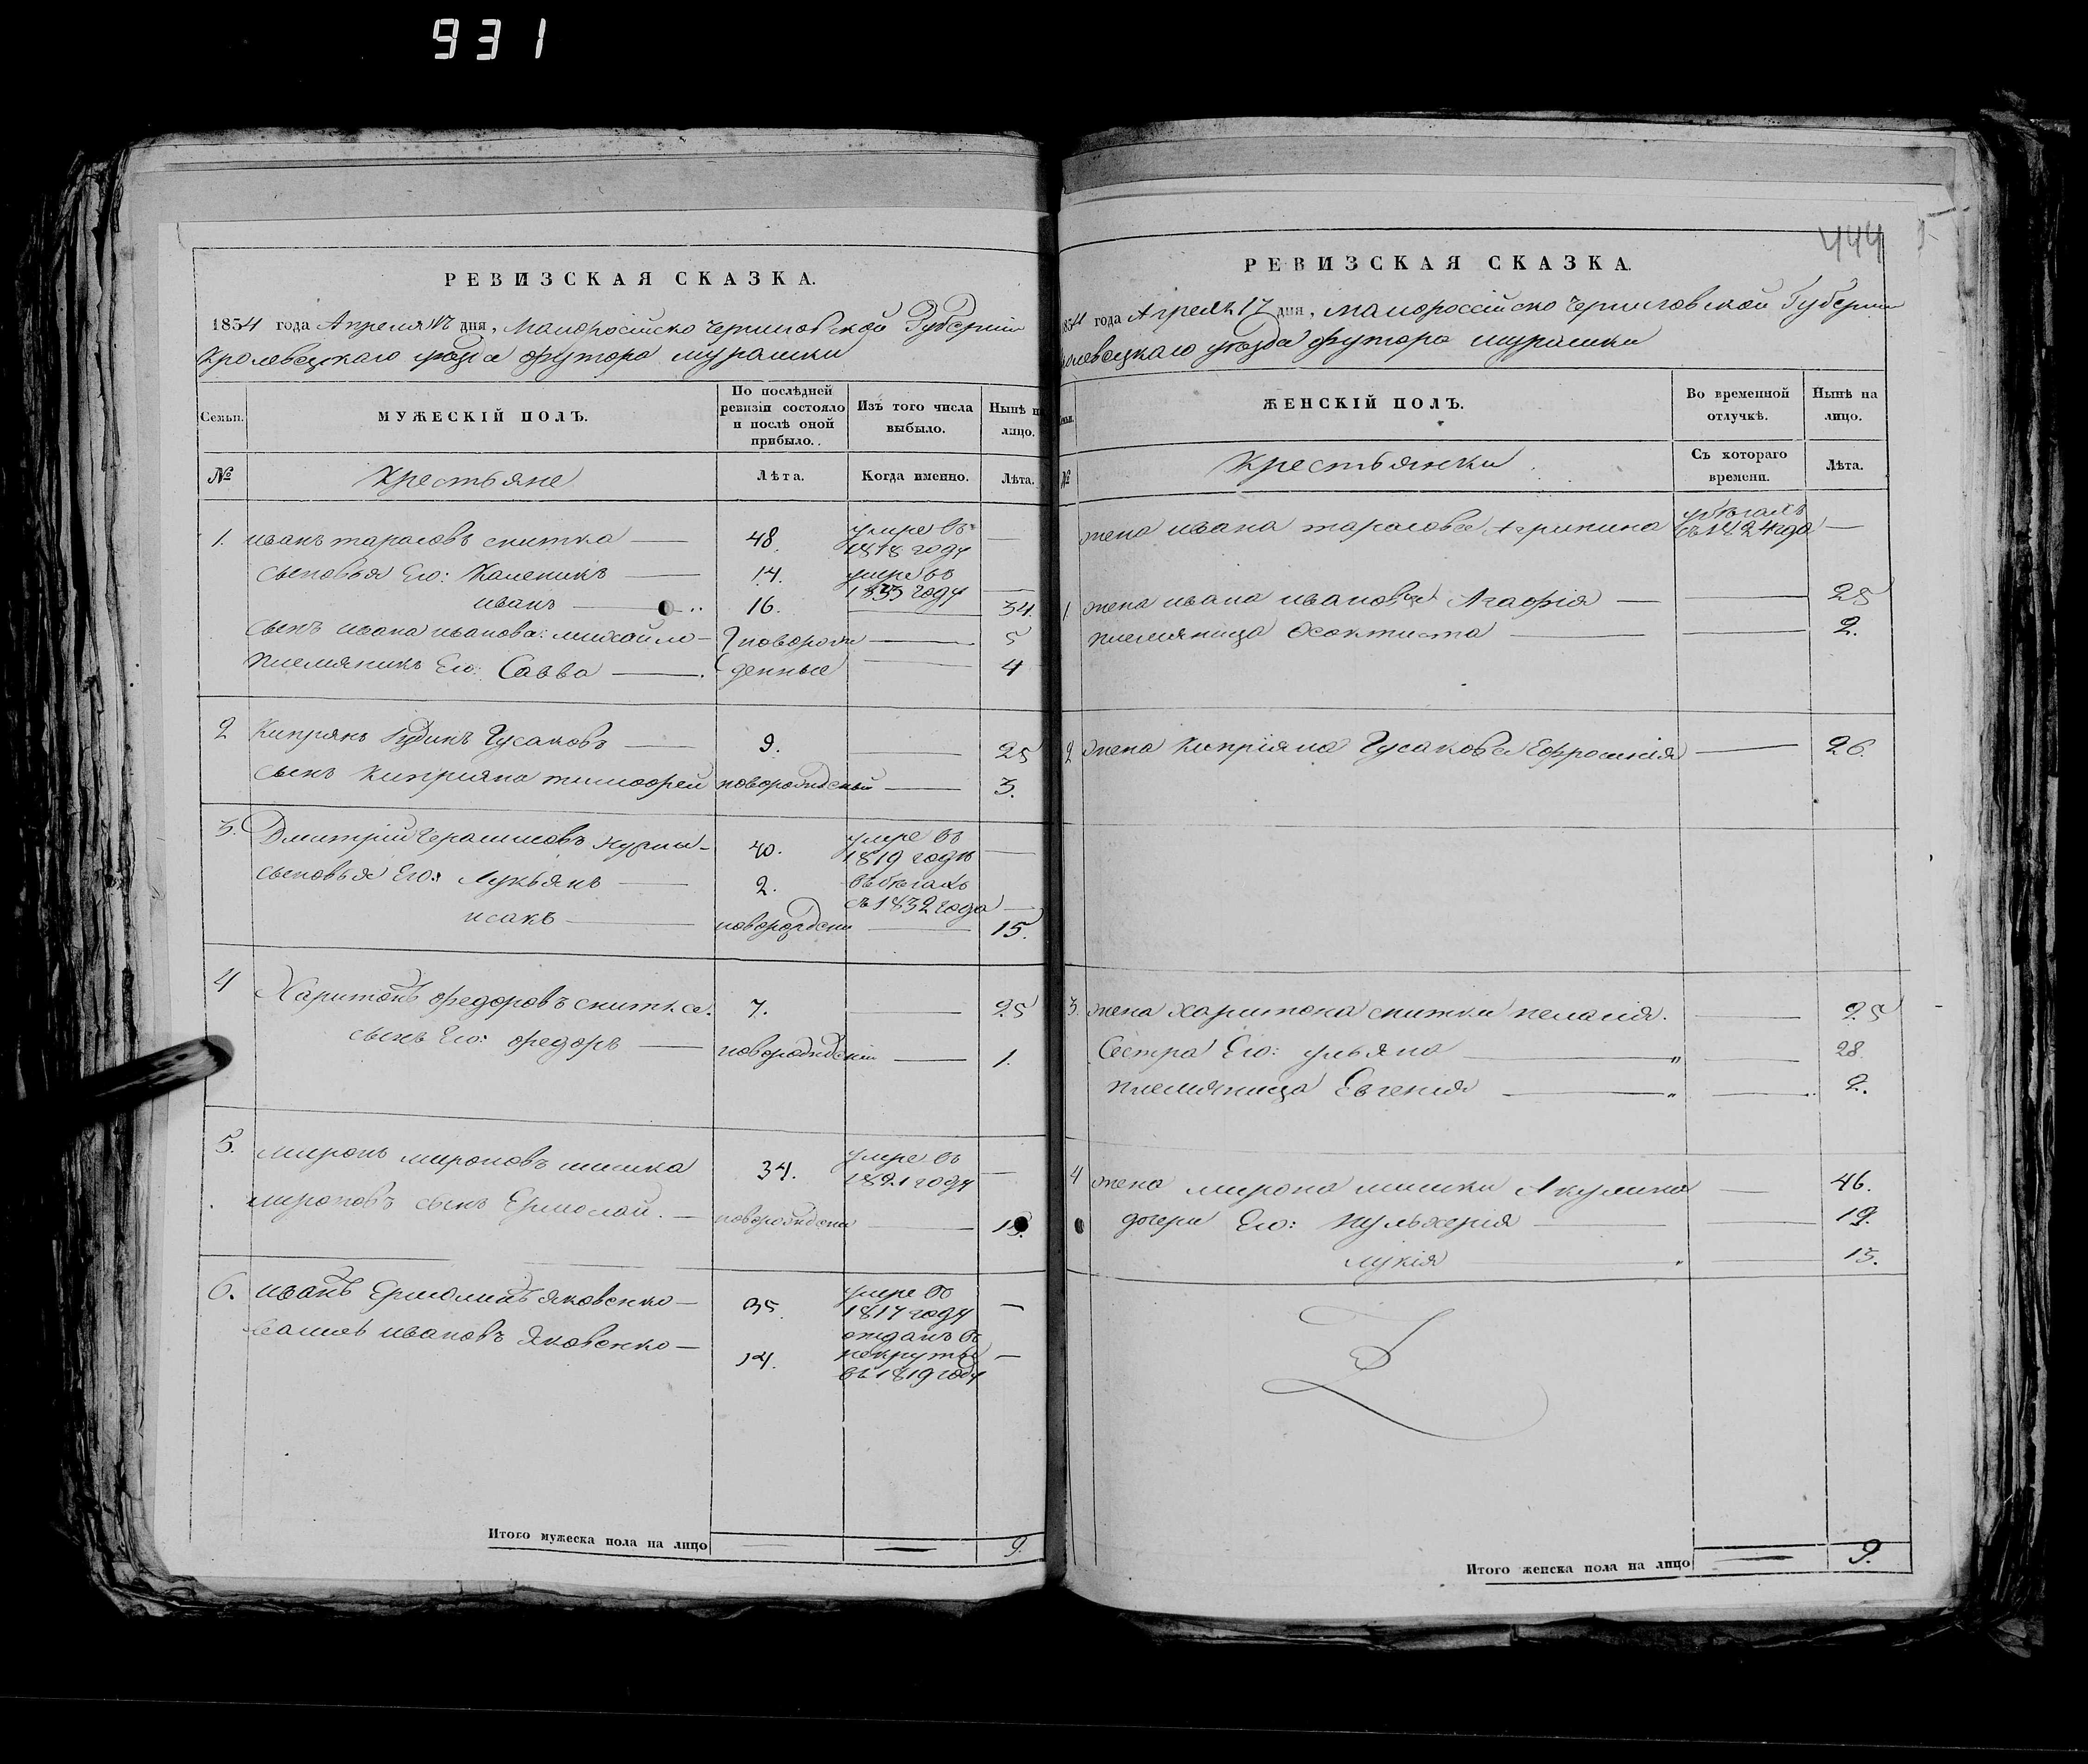 931
РЕВИЗСКАЯ СКАЗКА.
1834 года Апреля 17 дня, Малоросійско Черниговской Губерніи
Кролевецкаго уезда футора мурашки
Семьи.
МУЖЕСКІЙ ПОЛЪ.
По послѣдней ревизіи состояло и послѣ оной прибыло.
Изъ того числа выбыло.
Нынѣ на лицо.
№
Крестьяне
Лѣта.
Когда именно.
Лѣта.
1. иванъ тарасовъ скитка — 48. умре въ 1818 году —
сыновья Его: Каленикъ — 14. умре въ 1833 году —
иванъ — 16. — 34.
сынъ ивана иванова: михайло — новорож — 5
племяникъ Его: Савва — денные — 4
2 Кипрянъ Гусаковъ — 9. — 25
сынъ Киприяна тимофей новорожденый — 3.
3. Дмитрій Герасимовъ 40. умре въ 1819 годѣ —
сыновья Его: Лукьянъ — 2. въ бегахъ съ 1832 года —
исакъ — новорожден — 15.
4 Харитонъ федоровъ скитка. 7. — 25
сынъ Его: федоръ — новорожденій — 1.
5. миронъ мироновъ шишка 34. умре въ 1821 году —
мироновъ сынъ Ермолай. — новорожден —
6. иванъ Ермолинъ яковенко — 35. умре въ 1817 году —
ивановъ Яковенко — 14. отданъ въ рекруты въ 1819 году —
Итого мужеска пола на лицо — — 9.
444
РЕВИЗСКАЯ СКАЗКА.
1834 года Апреля 17 дня, малороссійско Черниговской Губерніи
кролевецкаго уезда футора мурашки
ЖЕНСКІЙ ПОЛЪ.
Во временной отлучкѣ.
Нынѣ на лицо.
№
Крестьянки
Съ котораго времени.
Лѣта.
жена ивана тарасова Агрипина в бегахъ съ 1824 года —
1 жена ивана иванова Агафія — — 25
племяница Феоктиста — — 2.
2 жена Кипріяна Гусакова Ефросинія — 26.
3. жена харитона скитки пелагія. — 25
Сестра Его: ульяна — — 28.
племяница Евгенія — — 2.
4 жена мирона шишки Акулина — 46.
дочери Его: пульхерія — — 19.
лукія — — 13.
Итого женска пола на лицо — 9.